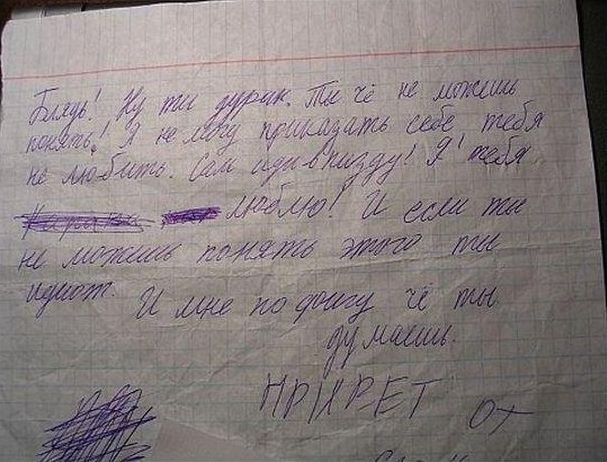 Блядь! Ну ты дурик. Ты чё не можешь
понять! Я не могу приказать себе тебя
не любить. Сам иди в пизду! Я тебя
люблю! И если ты
не можешь понять этого ты
идиот.
И мне пофигу чё ты
думаешь.
От